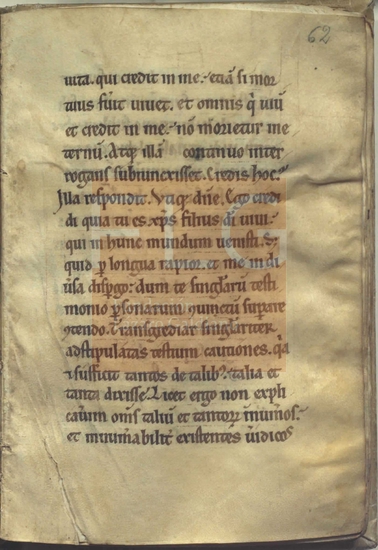 62
uita. qui credit in me. etiā si mor
tuus fuīt uiuet. et omnis q̇ uiu
et credit in me. nō morietur me
ternū. Atq; illā continuo inter
rogans subiunxisset. Credis hoc.
Illa respondit. Vtiq; dn̄e. Ego credi
di quia tu es xp̄s filius dī uiui.
qui in hunc mundum uenisti. S;
quid ꝑ longua rapior. et me in di
uisa disꝑgo: dum te singlarū testi
monio ꝑsonarum ɔiunctū suꝑare
ɔtendo. Transgrediar singlariter
adstipulatas testium cautiones. q̄a
sufficit tantos de talib; talia et
tanta dixisse. Licet ergo non expli
cauīm om̄s taliū et tantoꝝ
et innumabilīt existentes ūidicos